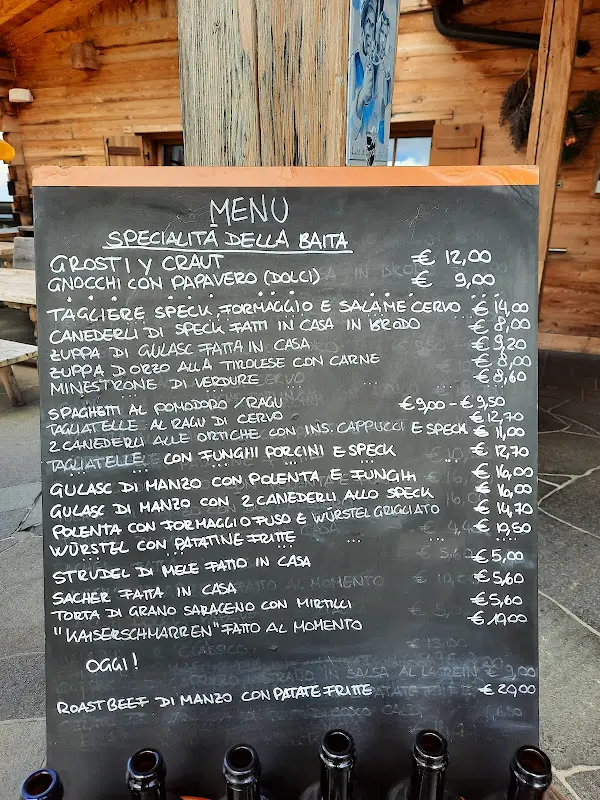 MENU
SPECIALITÁ DELLA BAITA
GROSTI Y CRAUT € 12,00
GNOCCHI CON PAPAVERO (DOLCI) € 9,00
TAGLIERE SPECK, FORMAGGIO E SALAME CERVO € 14,00
CANEDERLI DI SPECK FATTI IN CASA IN BRODO € 8,00
ZUPPA DI GULASC FATTA IN CASA € 9,20
ZUPPA D'ORZO ALLA TIROLESE CON CARNE € 8,00
MINESTRONE DI VERDURE € 8,60
SPAGHETTI AL POMODORO /RAGÚ € 9,00 - € 9,50
TAGLIATELLE AL RAGÚ DI CERVO € 12,70
2 CANEDERLI ALLE ORTICHE CON INS. CAPPUCCI E SPECK € 11,00
TAGLIATELLE CON FUNGHI PORCINI E SPECK € 12,70
GULASC DI MANZO CON POLENTA E FUNGHI € 16,00
GULASC DI MANZO CON 2 CANEDERLI ALLO SPECK € 16,00
POLENTA CON FORMAGGIO FUSO E WÜRSTEL GRIGLIATO € 14,70
WÜRSTEL CON PATATINE FRITTE € 10,50
STRUDEL DI MELE FATTO IN CASA € 5,00
SACHER FATTA IN CASA € 5,60
TORTA DI GRANO SARACENO CON MIRTILLI € 5,60
"KAISERSCHMARREN" FATTO AL MOMENTO
OGGI!
ROASTBEEF DI MANZO CON PATATE FRITTE